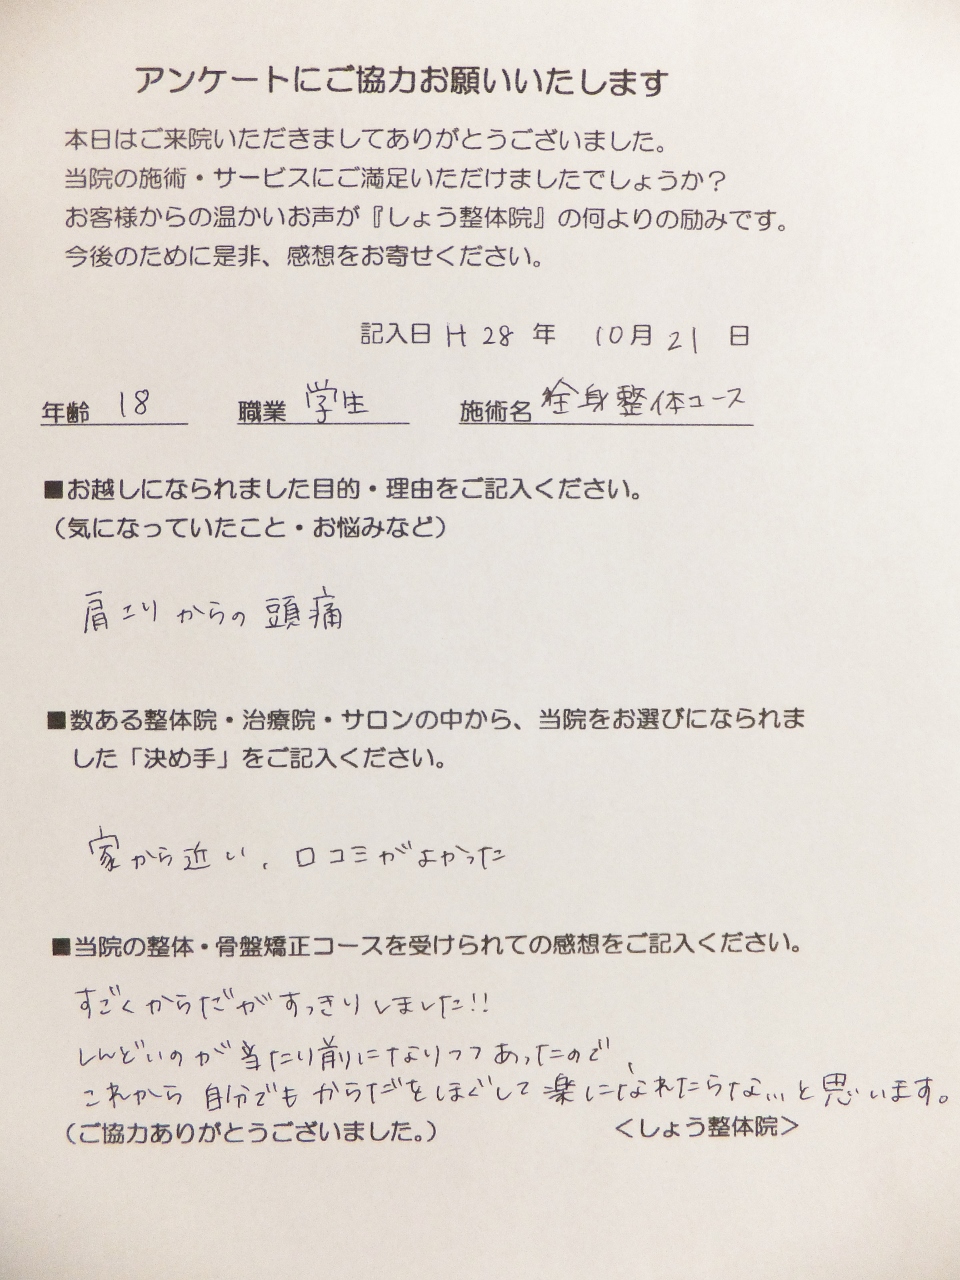 アンケートにご協力お願いいたします
本日はご来院いただきましてありがとうございました。
当院の施術・サービスにご満足いただけましたでしょうか？
お客様からの温かいお声が『しょう整体院』の何よりの励みです。
今後のために是非、感想をお寄せください。
記入日 H 28 年 10月 21 日
年齢 18 職業 学生 施術名 全身整体コース
■お越しになられました目的・理由をご記入ください。
（気になっていたこと・お悩みなど）
肩こりからの頭痛
■数ある整体院・治療院・サロンの中から、当院をお選びになられま
した「決め手」をご記入ください。
家から近い、口コミがよかった
■当院の整体・骨盤矯正コースを受けられての感想をご記入ください。
すごくからだがすっきりしました!!
しんどいのが当たり前になりつつあったので、
これから自分でもからだをほぐして楽になれたらな…と思います。
（ご協力ありがとうございました。） ＜しょう整体院＞